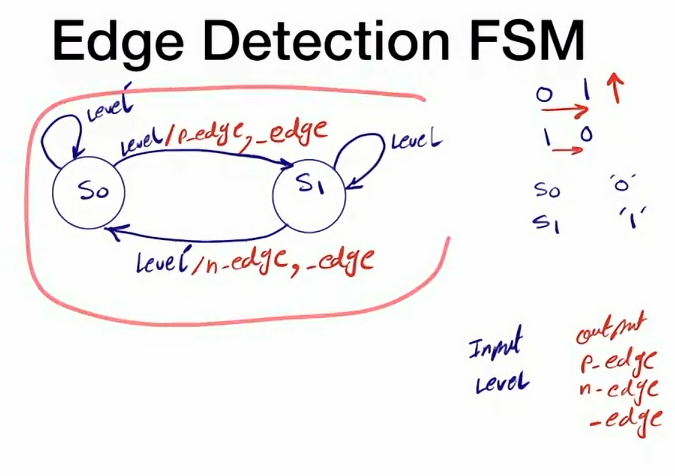 Edge Detection FSM
Level'
Level/p-edge, _edge
Level
S0
S1
Level/n-edge, _edge
0 1 ↑
1 0
S0 '0'
S1 '1'
Input output
Level p-edge
n-edge
_edge